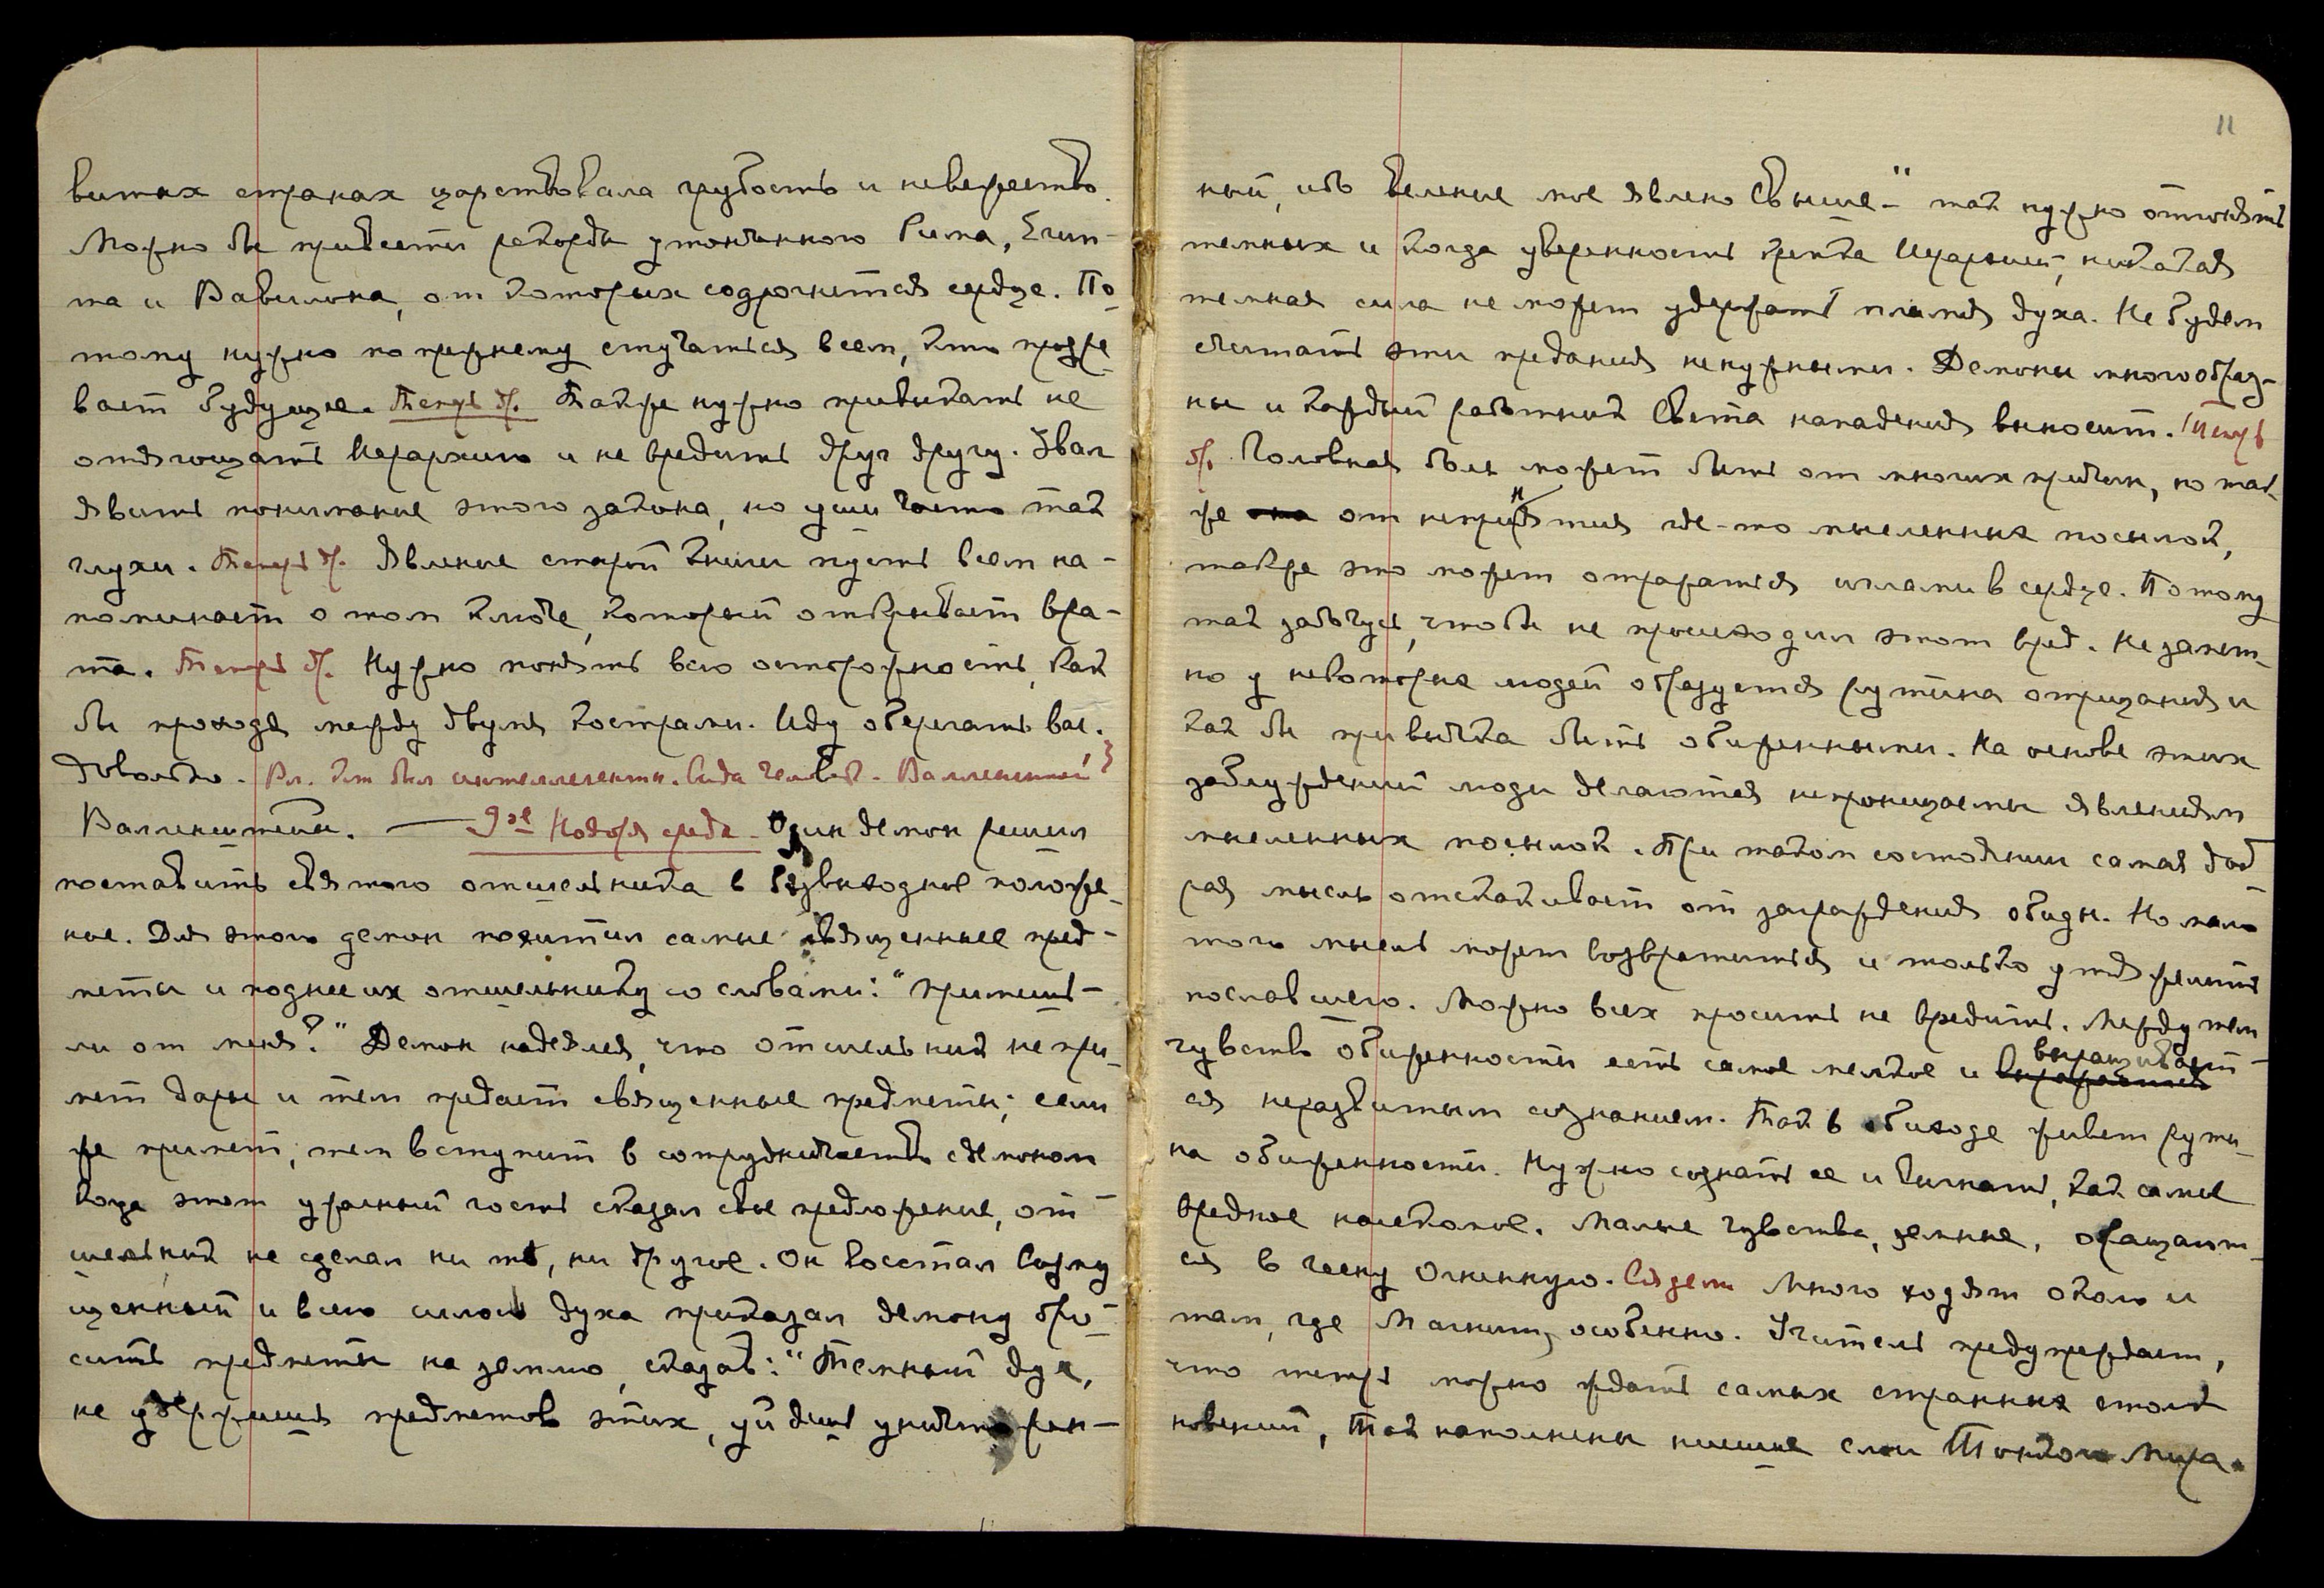 витых странах царствовала грубость и невежество.
Можно бы привести рекорды утонченного Рима, Егип-
та и Вавилона, от которых содрогнется сердце. По-
тому нужно по прежнему стучаться всем, кто прозре-
вает будущее. Теперь др. Также нужно привыкать не
отягощать Иерархию и не вредить друг другу. Звал
явить понимание этого закона, но уши часто так
глухи. Теперь др. Явление старой книги пусть всем на-
поминает о том ключе, который открывает вра-
та. Теперь др. Нужно понять всю осторожность, как
бы проходя между двумя кострами. Иду оберегать вас.
Довольно. Вл. кто был
Валленштейн. — 9ое Ноября среда. Один демон решил
поставить святого отшельника в безвыходное положе-
ние. Для этого демон похитил самые священные пред-
меты и поднес их отшельнику со словами: "Примешь-
ли от меня?" Демон надеялся, что отшельник не при-
мет дары и тем предаст священные предметы; если
же примет, тем вступит в сотрудничество с демоном
Когда этот ужасный гость сказал свое предложение, от-
шельник не сделал ни то, ни другое. Он восстал возму-
щенный и всею силою духа приказал демону бро-
сить предметы на землю, сказав: "Темный дух,
не удержишь предметов этих, уйдешь уничтожен-
11
ный, ибо веление мое явлено Свыше-" так нужно отгонять
темных и когда уверенность крепка Иерархией, никакая
темная сила не может удержать пламя духа. Не будем
считать эти предания ненужными. Демоны многообраз-
ны и каждый работник Света нападения выносит. Теперь
др. Головная боль может быть от многих причин, но так-
же от непринятия где-то мысленных посылок,
также это может отражаться иглами в сердце. Потому
так забочусь, чтобы не происходил этот вред. Незамет-
но у некоторых людей образуется рутина отрицания и
как бы привычка быть обиженными. На основе этих
заблуждений люди делаются непроницаемы явлениям
мысленных посылок. При таком состоянии самая доб-
рая мысль отскакивает от заграждения обиды. Но мало
того мысль может возвратиться и только утяжелить
пославшего. Можно всех просить не вредить. Между тем
чувство обиженности есть самое мелкое и выращивает-
ся неразвитым сознанием. Так в обиходе живет рути-
на обиженности. Нужно сознать ее и выгнать, как самое
вредное насекомое. Малые чувства, земные, обращают-
ся в геену огненную. Сядем Много ходят около и
там, где Магнит, особенно. Учитель предупреждает,
что теперь можно ждать самых странных столк-
новений, так наполнены низшие слои Тонкого Мира.